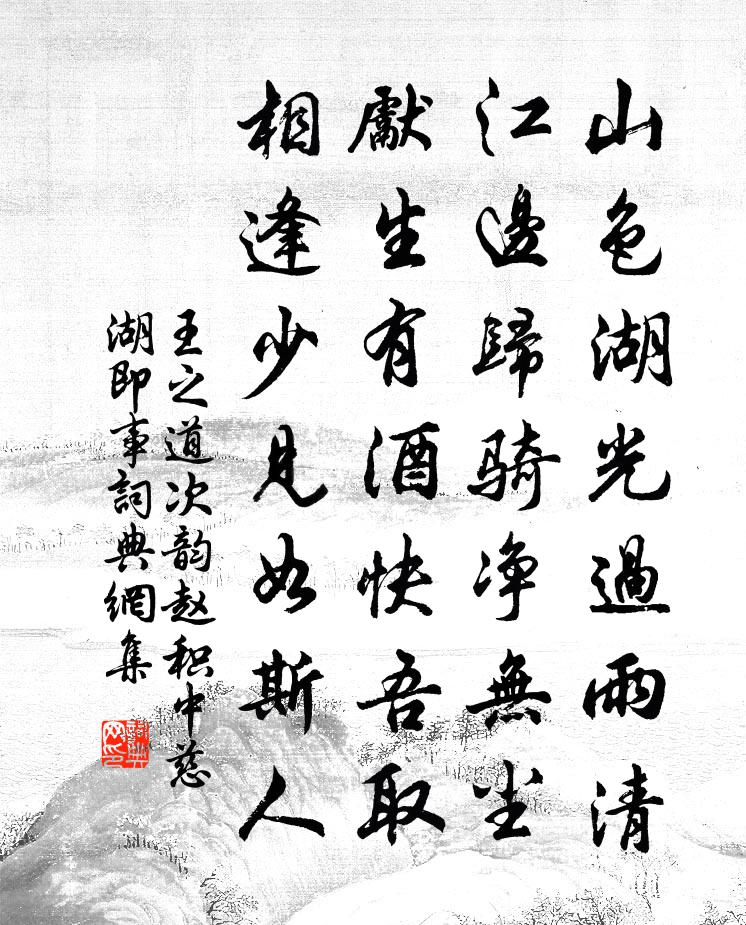 山色湖光過雨清
江邊歸骑净無尘
獻生有酒快吾取
相逢少見如斯人
王之道次韵赵积中慈
湖即事詞典網集